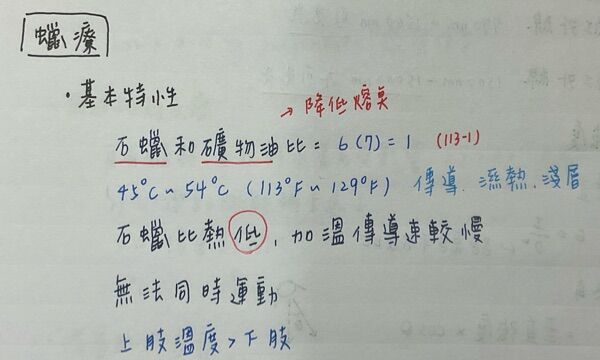 蠟療
・基本特性
→ 降低熔點
石蠟和礦物油比 = 6(7) = 1 (113-1)
45°C ~ 54°C (113°F ~ 129°F) 傳導、濕熱、淺層
石蠟比熱低，加溫傳導速較慢
無法同時運動
上肢溫度 > 下肢